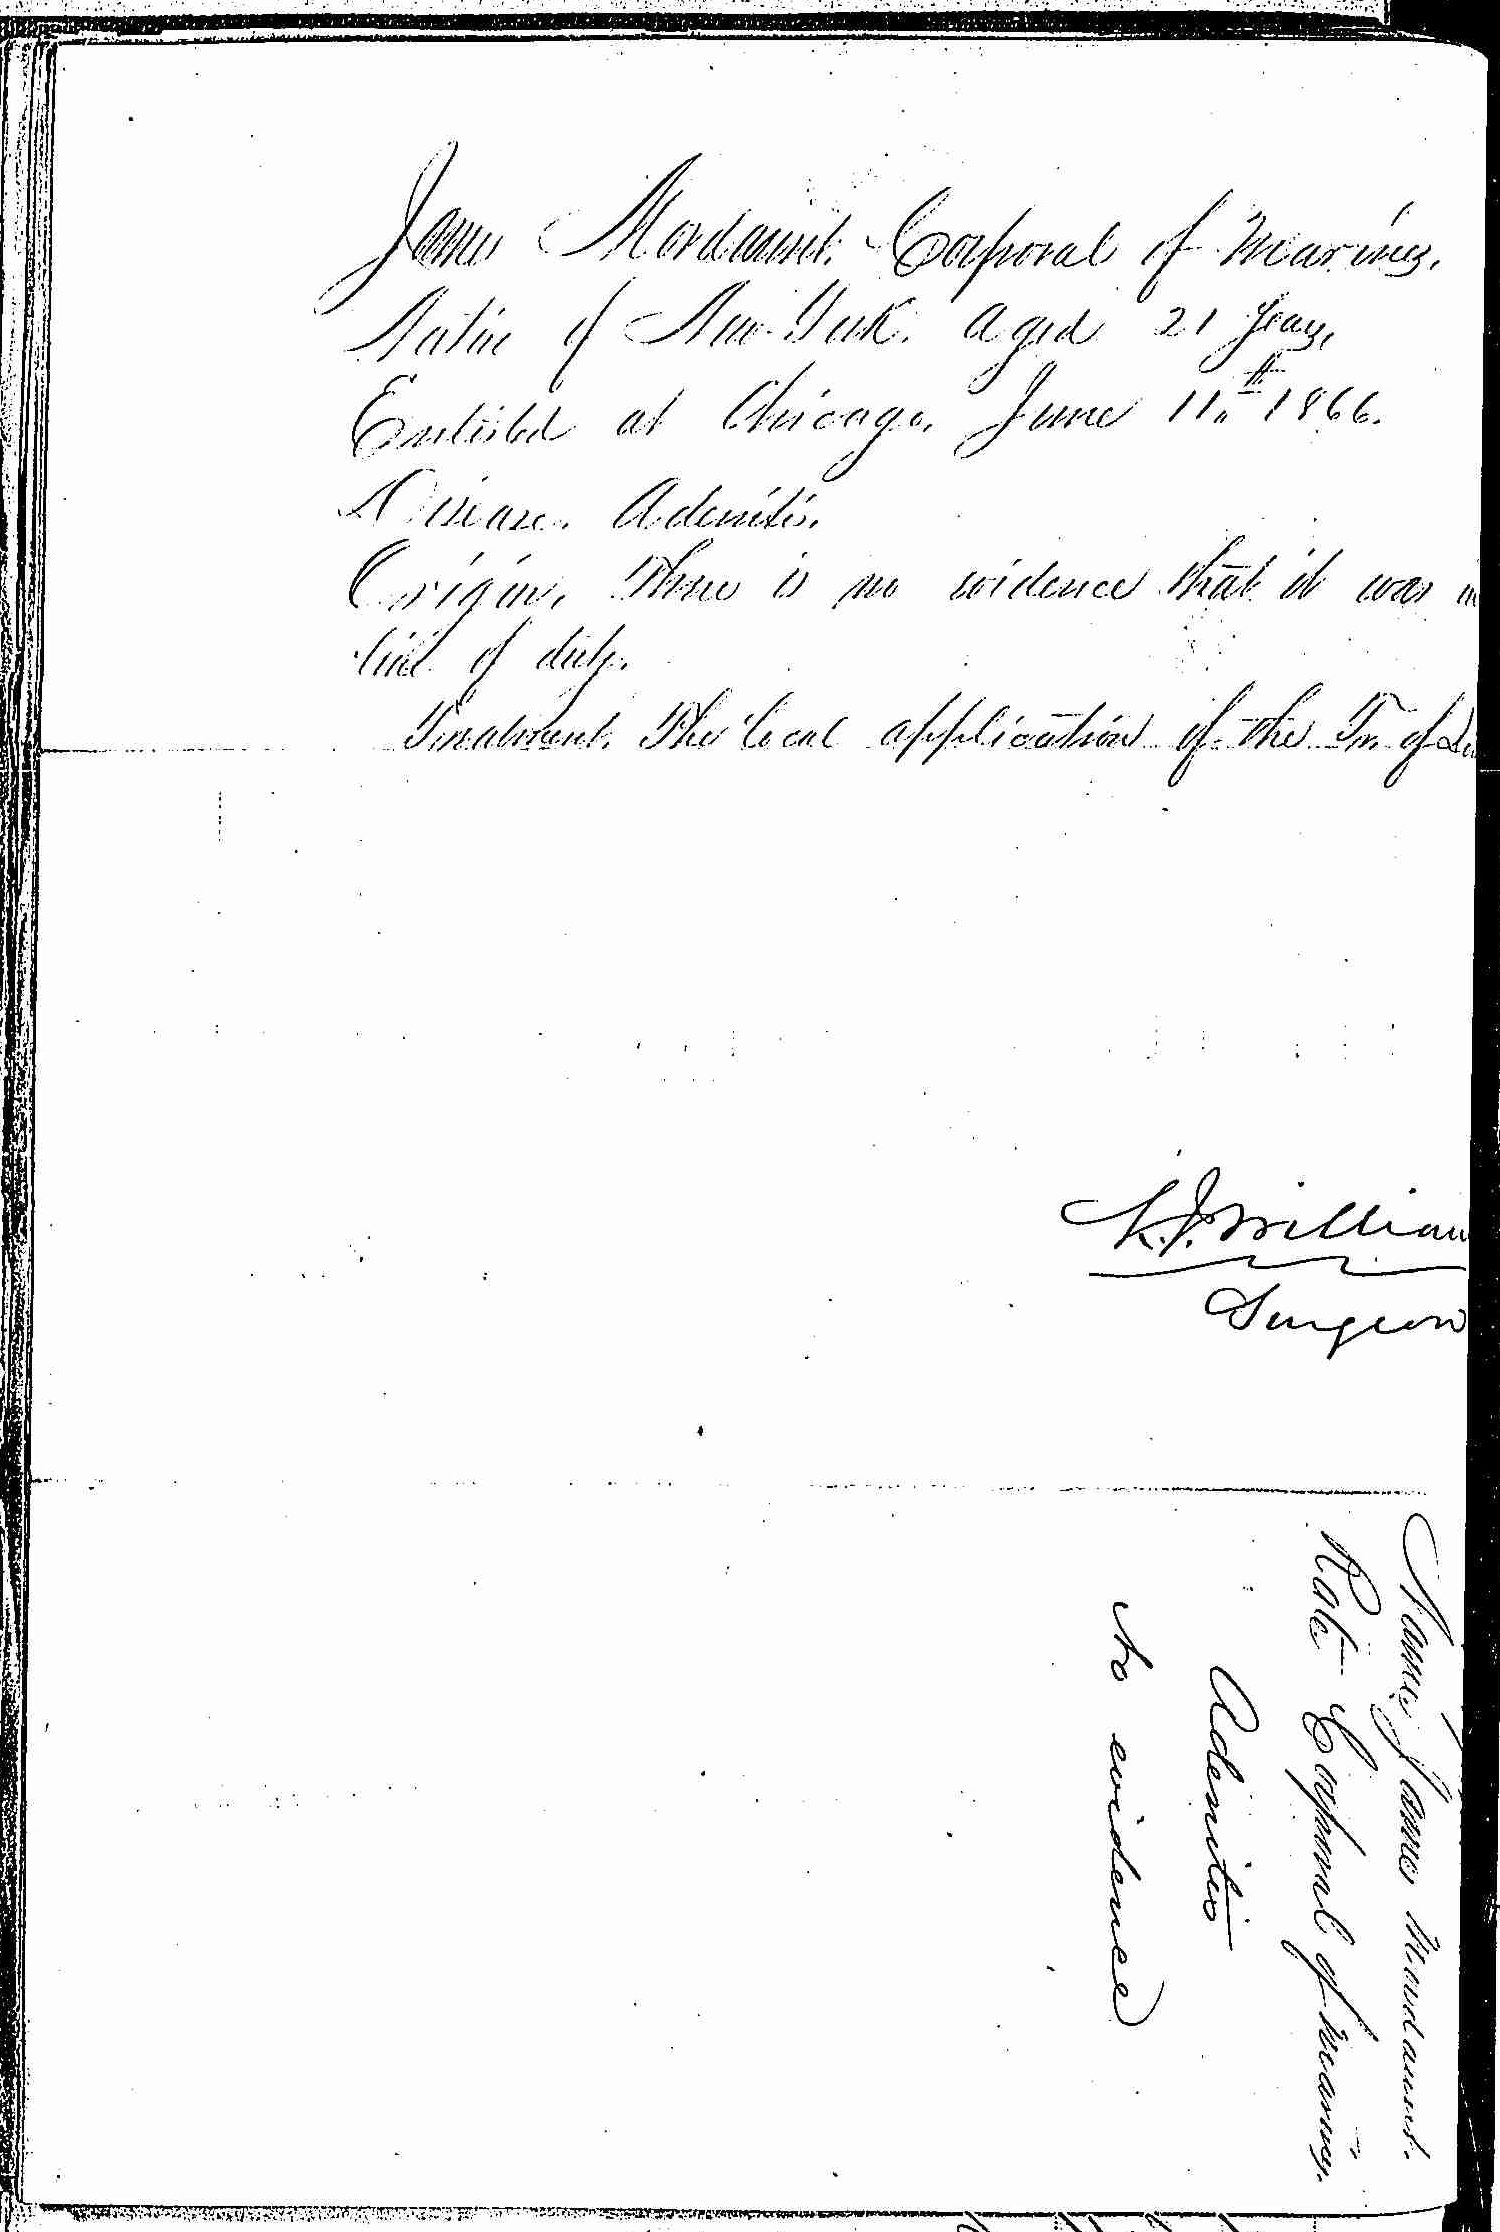 James Mordaunt. Corporal of Marines.
Native of New-York. Aged 21 years.
Enlisted at Chicago, June 11th 1866.
Disease. Adenitis.
Origin, There is no evidence that it was in
line of duty.
Treatment. The local application of the Tr. of
K. J. William
Surgeon
Name, James Mordaunt.
Rate Corporal of Marines.
Adenitis
No evidence